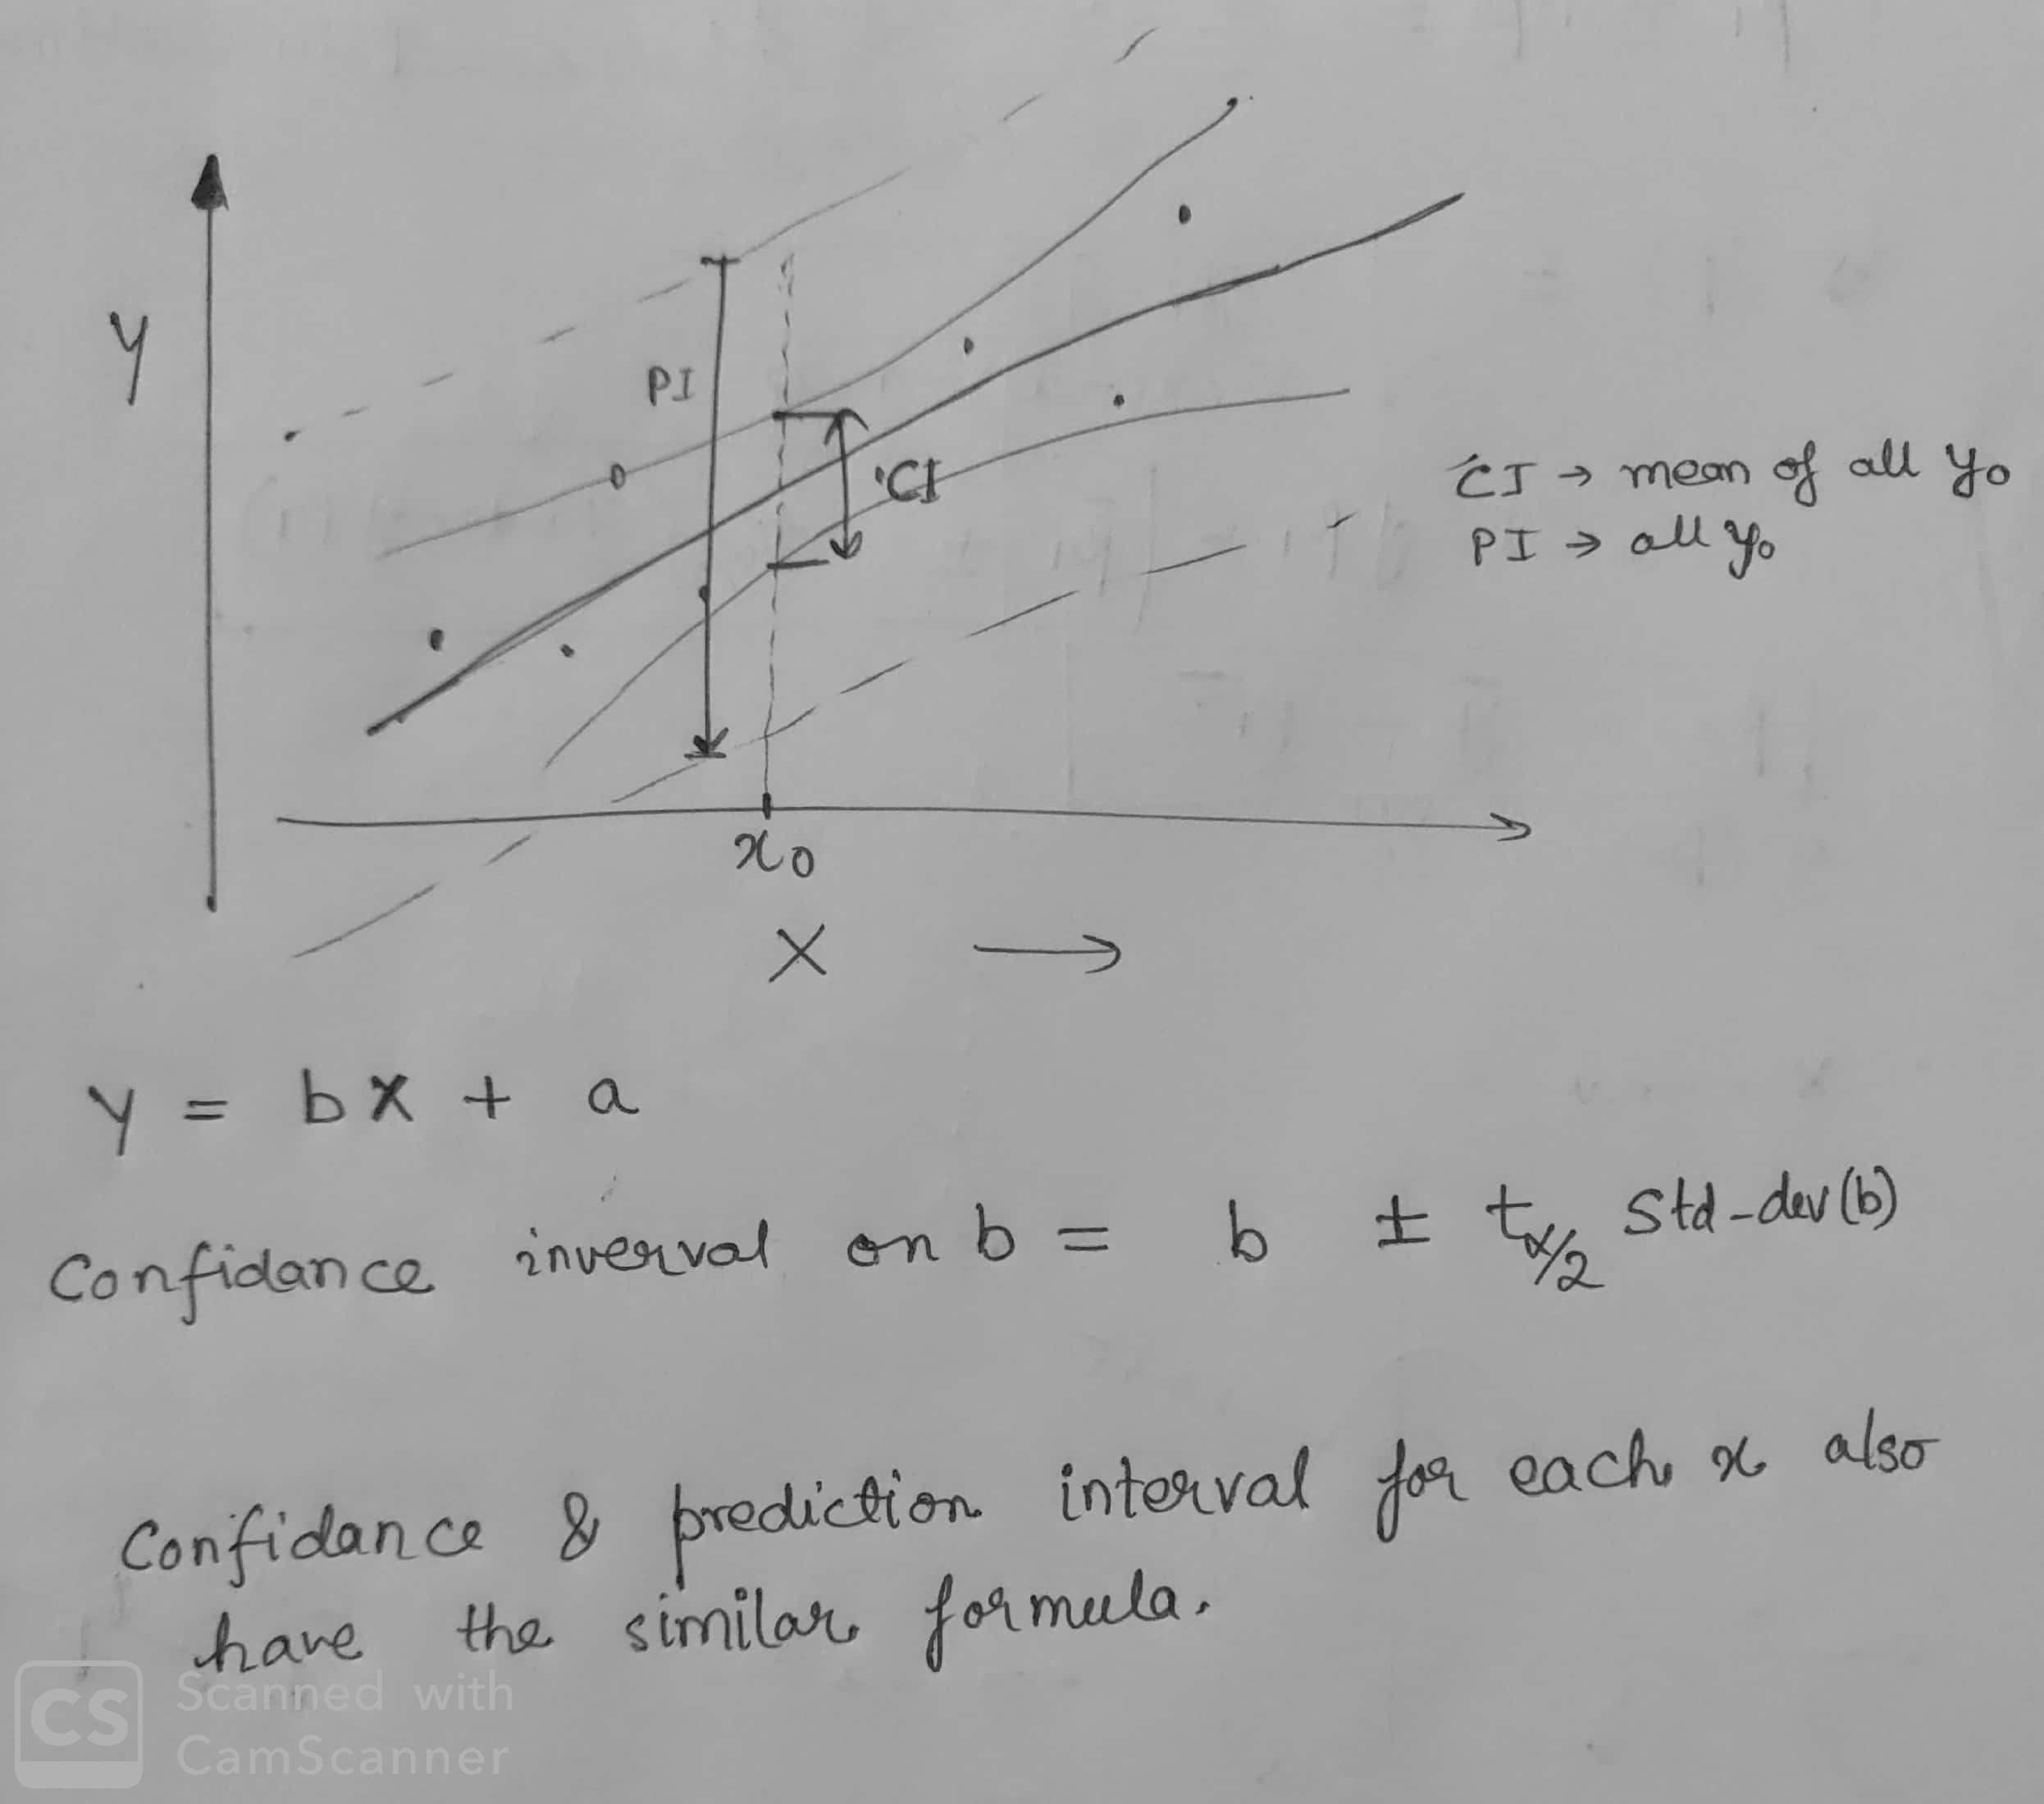 Y
PI
CI
CI → mean of all y₀
PI → all y₀
x₀
X →
y = bx + a
Confidance inverval on b = b ± t_α/2 Std-dev(b)
Confidance & prediction interval for each x also
have the similar formula.
CS Scanned with
CamScanner